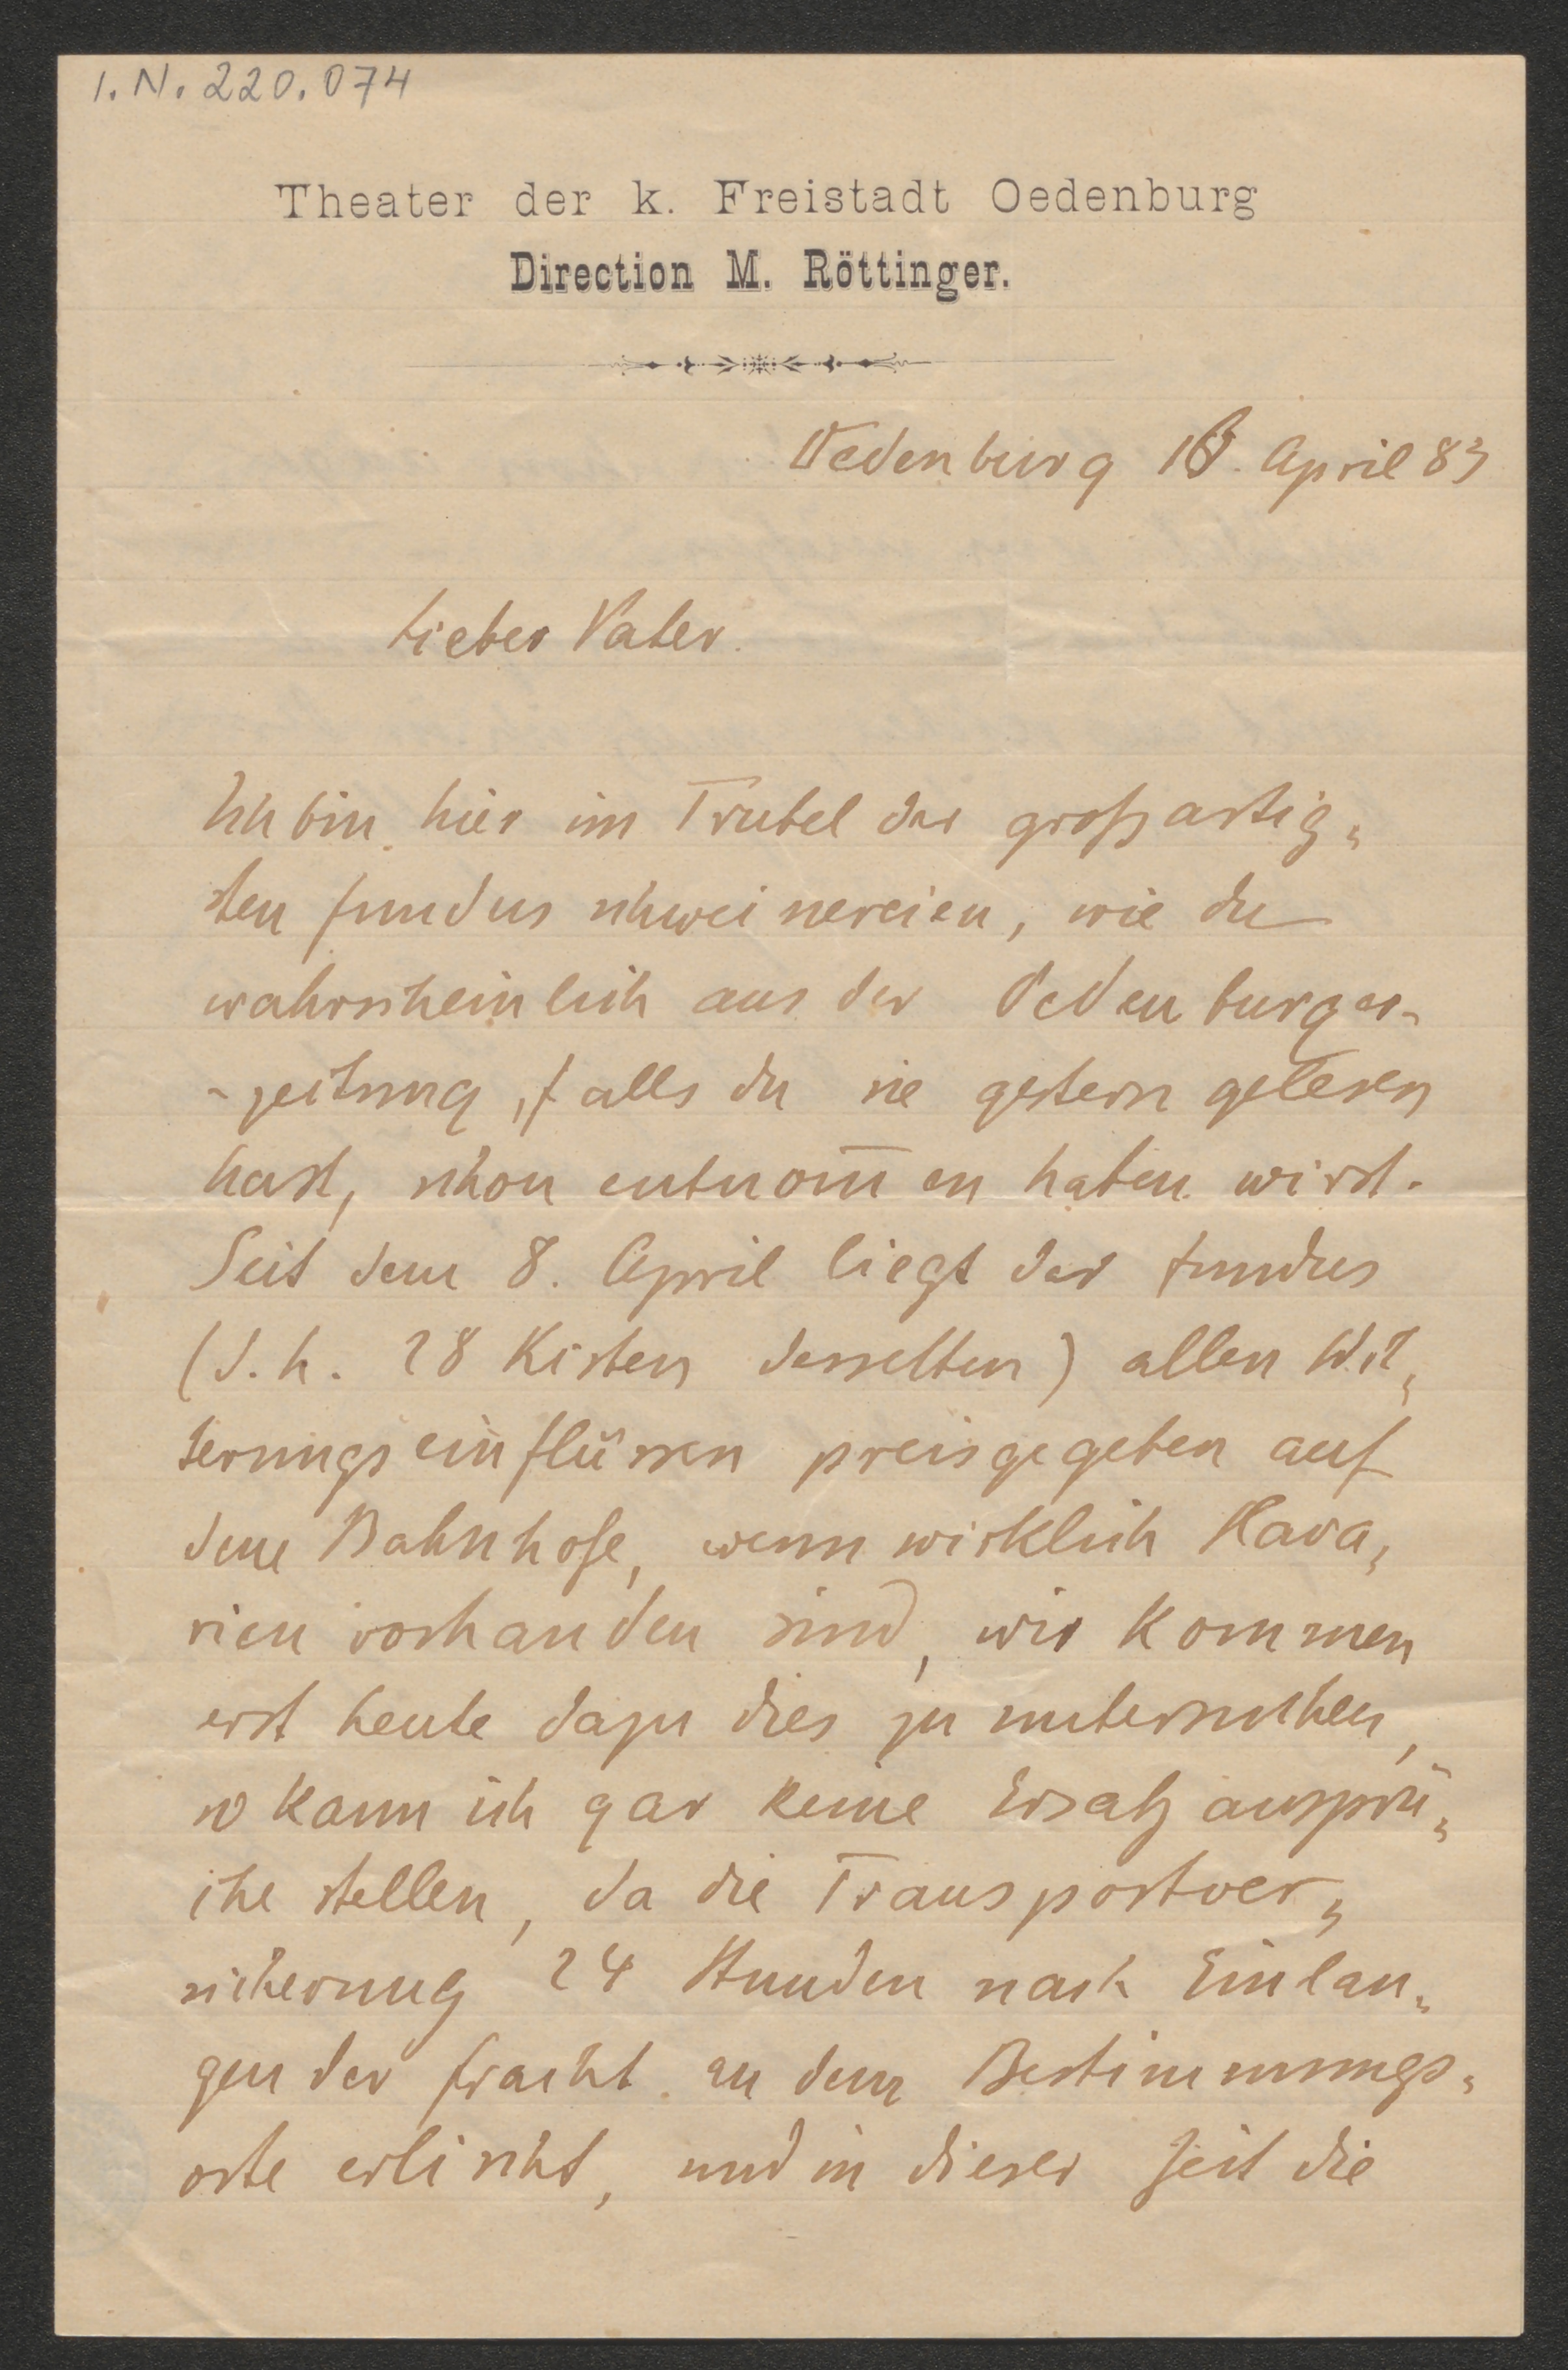 I.N. 220.074
Theater der k. Freistadt Oedenburg
Direction M. Röttinger.
Oedenburg April 83
Lieber Vater.
Ich bin hier im Trubel der großartig„
sten fundusschweinereien, wie du
wahrscheinlich aus der Oedenburger-
-zeitung, falls du sie gestern gelesen
hast, schon entnom̅en haben wirst.
Seit dem 8. April liegt der fundus
(d.h. 28 Kisten desselben) allen Wit„
terungseinflüssen preisgegeben auf
dem Bahnhofe, wenn wirklich Hava„
rien vorhanden sind, wir kommen
erst heute dazu dies zu untersuchen,
so kann ich gar keine Ersatzansprü„
che stellen, da die Transportver„
sicherung 24 Stunden nach Einlan„
gen der fracht an dem Bestimmungs„
orte erlischt, und in dieser Zeit die